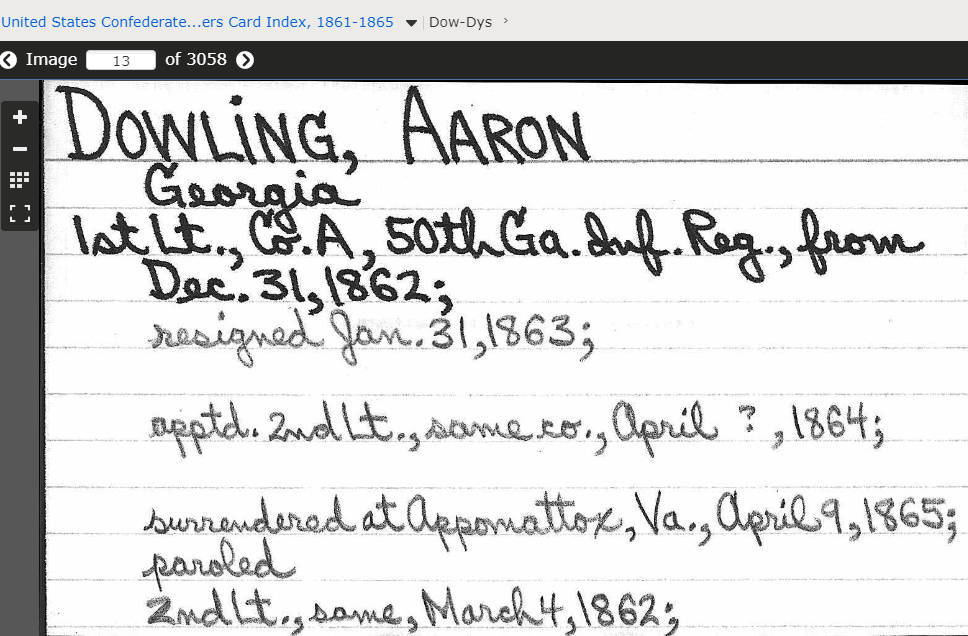 United States Confederate...ers Card Index, 1861-1865 Dow-Dys
Image 13 of 3058
DOWLING, AARON
Georgia
1st Lt., Co. A, 50th Ga. Inf. Reg., from
Dec. 31, 1862;
resigned Jan. 31, 1863;
apptd. 2nd Lt., same co., April ?, 1864;
surrendered at Appomattox, Va., April 9, 1865;
paroled
2nd Lt., same, March 4, 1862;